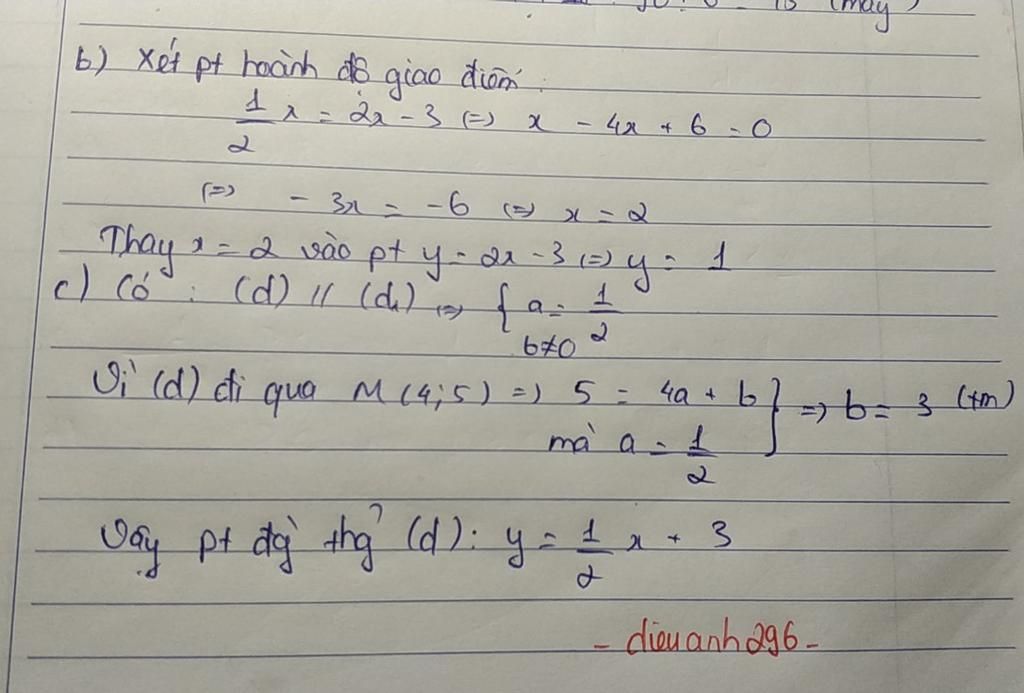 (máy)
b) Xét pt hoành độ giao điểm:
1/2 x = 2x - 3 (=) x - 4x + 6 = 0
(=) - 3x = -6 (=) x = 2
Thay x = 2 vào pt y = 2x - 3 (=) y = 1
c) Có : (d) // (d₁) => { a = 1/2
b≠0
Vì (d) đi qua M (4;5) =) 5 = 4a + b } => b = 3 (tm)
mà a = 1/2
Vậy pt đg` thg? (d): y = 1/2 x + 3
- dieuanh296 -